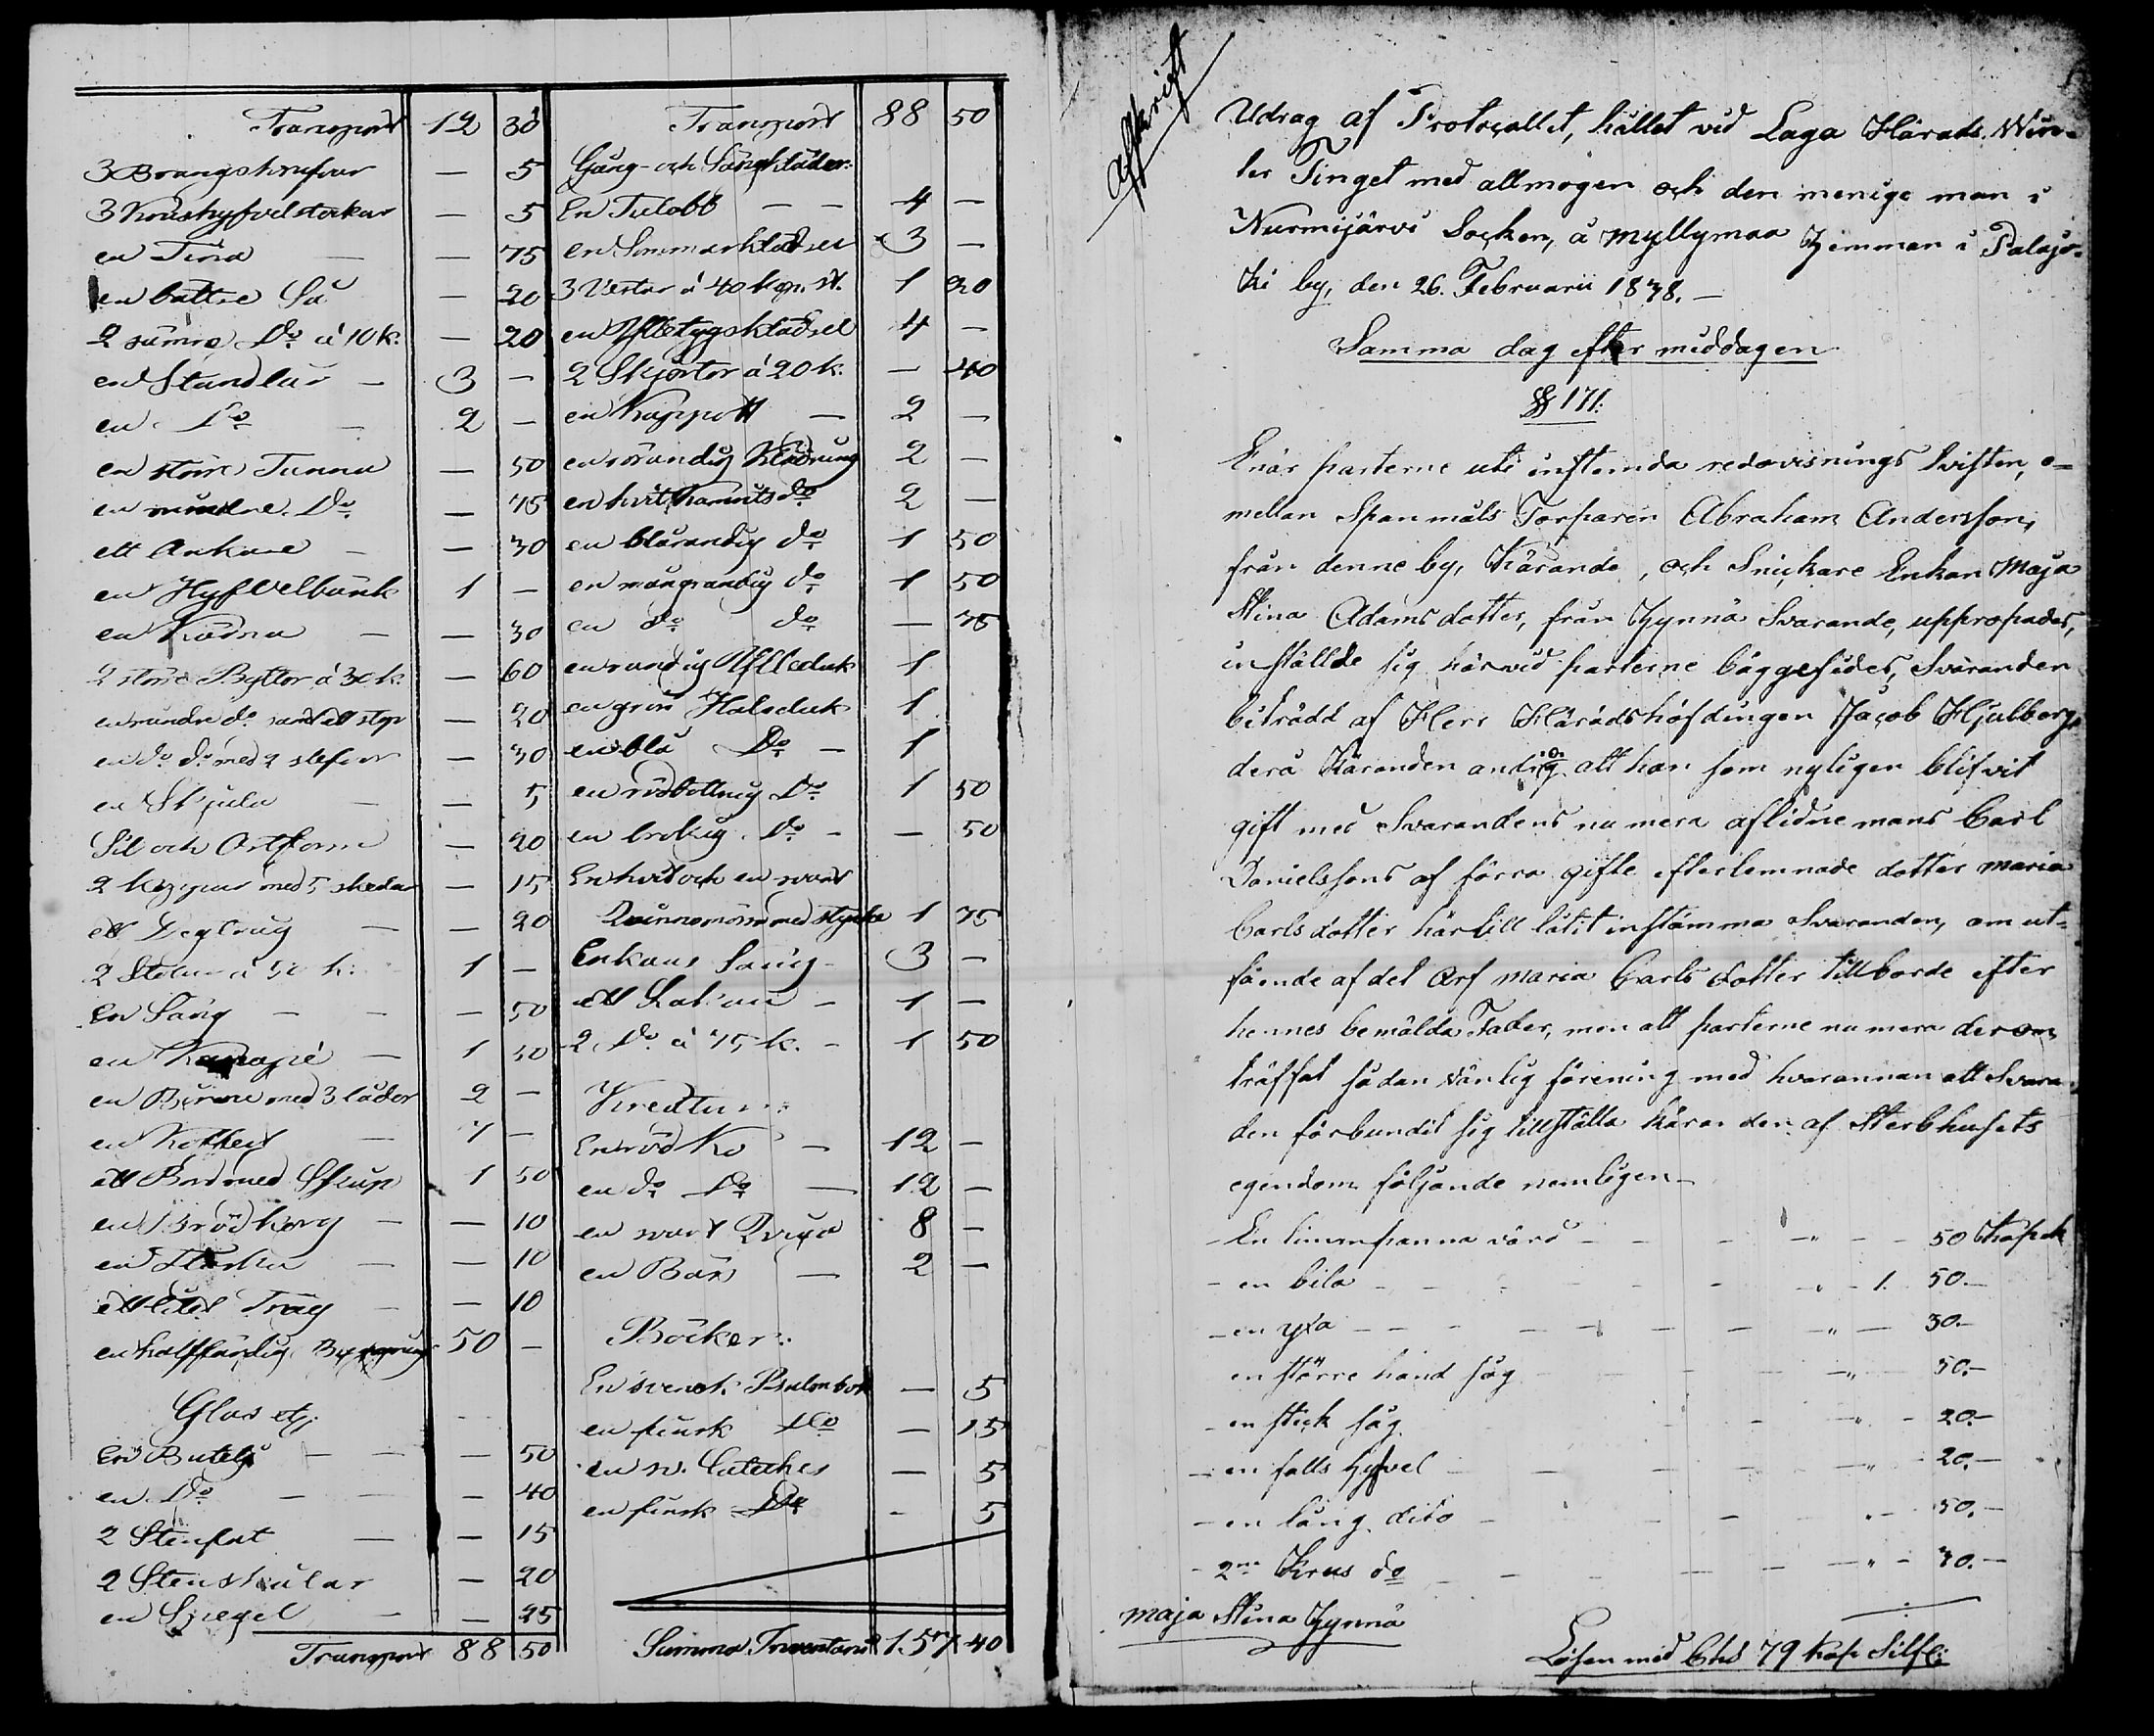 Transport 12 30
3 Brangskrufvar — 5
3 Krushyfvelstockar — 5
en Tina — 75
en battre Så — 20
2 sämre Do á 10 k. — 20
en Standtur 3 —
en Do 2 —
en större Tunna — 50
en mindre Do — 75
ett Ankare — 30
en Hyfvelbänk 1 —
en Kärna — 30
2 större Byttor á 30 k. — 60
en mindre do samt ett stop — 20
en do do med 2 stefvar — 30
en Skjula — 5
Sil och Ostform — 20
2 Koppar med 5 skedar — 15
ett Degtrug — 20
2 Stolar á 50 k: 1 —
En Säng — 50
en Kanapé 1 50
en Bÿrone med 3 lådor 2 —
en Kätkes 7 —
ett Bord med Skåp 1 50
en Brödkorg — 10
en Flaska — 10
ett litet Tråg — 10
en halffärdig Byggnung 50 —
Glas etc:
En Butelj — 50
en Do — 40
2 Stenfat — 15
2 Stenskålar — 20
en Spegel — 25
Transport 88 50
Transport 88 50
Gång- och Sängkläder:
En Tulobb 4 —
en Sommarklädsel 3 —
3 Vestar á 40 kop. st. 1 20
en Ylletygsklädsel 4 —
2 Skjortor á 20 k. — 40
en Kappott 2 —
en rörandig Klädning 2 —
en hvit kamuts do 2 —
en blårandig do 1 50
en mångrandig do 1 50
en do do — 75
en randig Ylleduk 1
en grön Halsduk 1
en blå Do 1
en rödbottnig Do 1 50
en brokig Do — 50
En hvit och en svart
Qvinnomössa med stycke 1 75
Enkans Säng 3 —
ett Lakan 1 —
2 Do á 75 k. 1 50
Kreatur:
En röd Ko 12 —
en do Do 12 —
en svart Qviga 8 —
en Bår 2 —
Böcker:
En svensk Psalmbok — 5
en finsk Do — 15
en sv. Catechis — 5
en finsk Do — 5
Summa Inventarii 157 40
Afskrift
Udrag af Protocollet, hållet vid Laga Härads Win-
ter Tinget med allmogen och den menige man i
Nurmijärvi Socken, å Myllymaa Hemman i Palojo-
ki by, den 26. Februarii 1838. —
Samma dag efter middagen
§ 171.
Enär parterne uti instemda redovisnings tvisten, e-
mellan Spanmåls Torparen Abraham Andersson,
från denne by, Kärande, och Snickare Enkan Maja
Stina Adams dotter, från Hynnä Svarande, uppropades,
inställde sig härvid parterne båggesides, Svaranden
biträdd af Herr Häradshöfdingen Jacob Hjulberg,
derå Käranden androg att han som nyligen blifvit
gift med Svarandens nu mera aflidne mans Carl
Danielssons af förra gifte efterlemnade dotter Maria
Carls dotter härtill låtit instämma Svaranden, om ut-
fående af det Arf Maria Carls dotter tillborde efter
hennes bemälda Fader, men att parterne nu mera derom
träffat sådan vänlig förening med hvarannan att Svaran
den förbundit sig tillställa Käranden af Sterbhusets
egendom följande nemligen —
- En limmpanna värd - " - 50 Kopek
- en bila - " - 1. 50. —
- en yxa - " - 30. —
en större hand såg - " - 50. —
- en stick såg - " - 20. —
- en falls hyfvel - " - 20. —
- en lång dito - " - 50. —
- 2ne Krus do - " - 70. —
Maja Stina Hynnä
Lösen med Chs 79 Kop Silf: